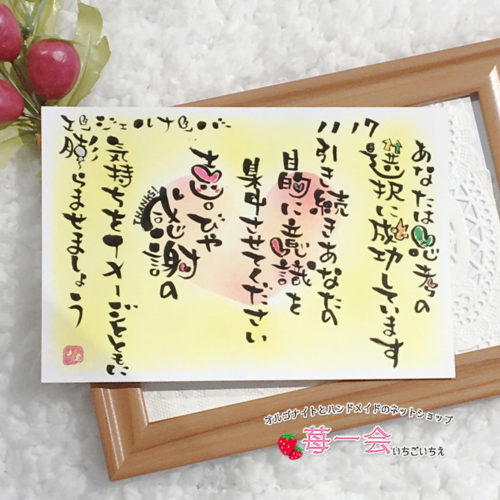 エンジェルナンバー
1117
あなたは思考の
選択に成功しています
引き続きあなたの
目的に意識を
集中させてください
喜びや
感謝の
気持ちをイメージとともに
膨らませましょう
オルゴナイトとハンドメイドのネットショップ
苺一会いちごいちえ